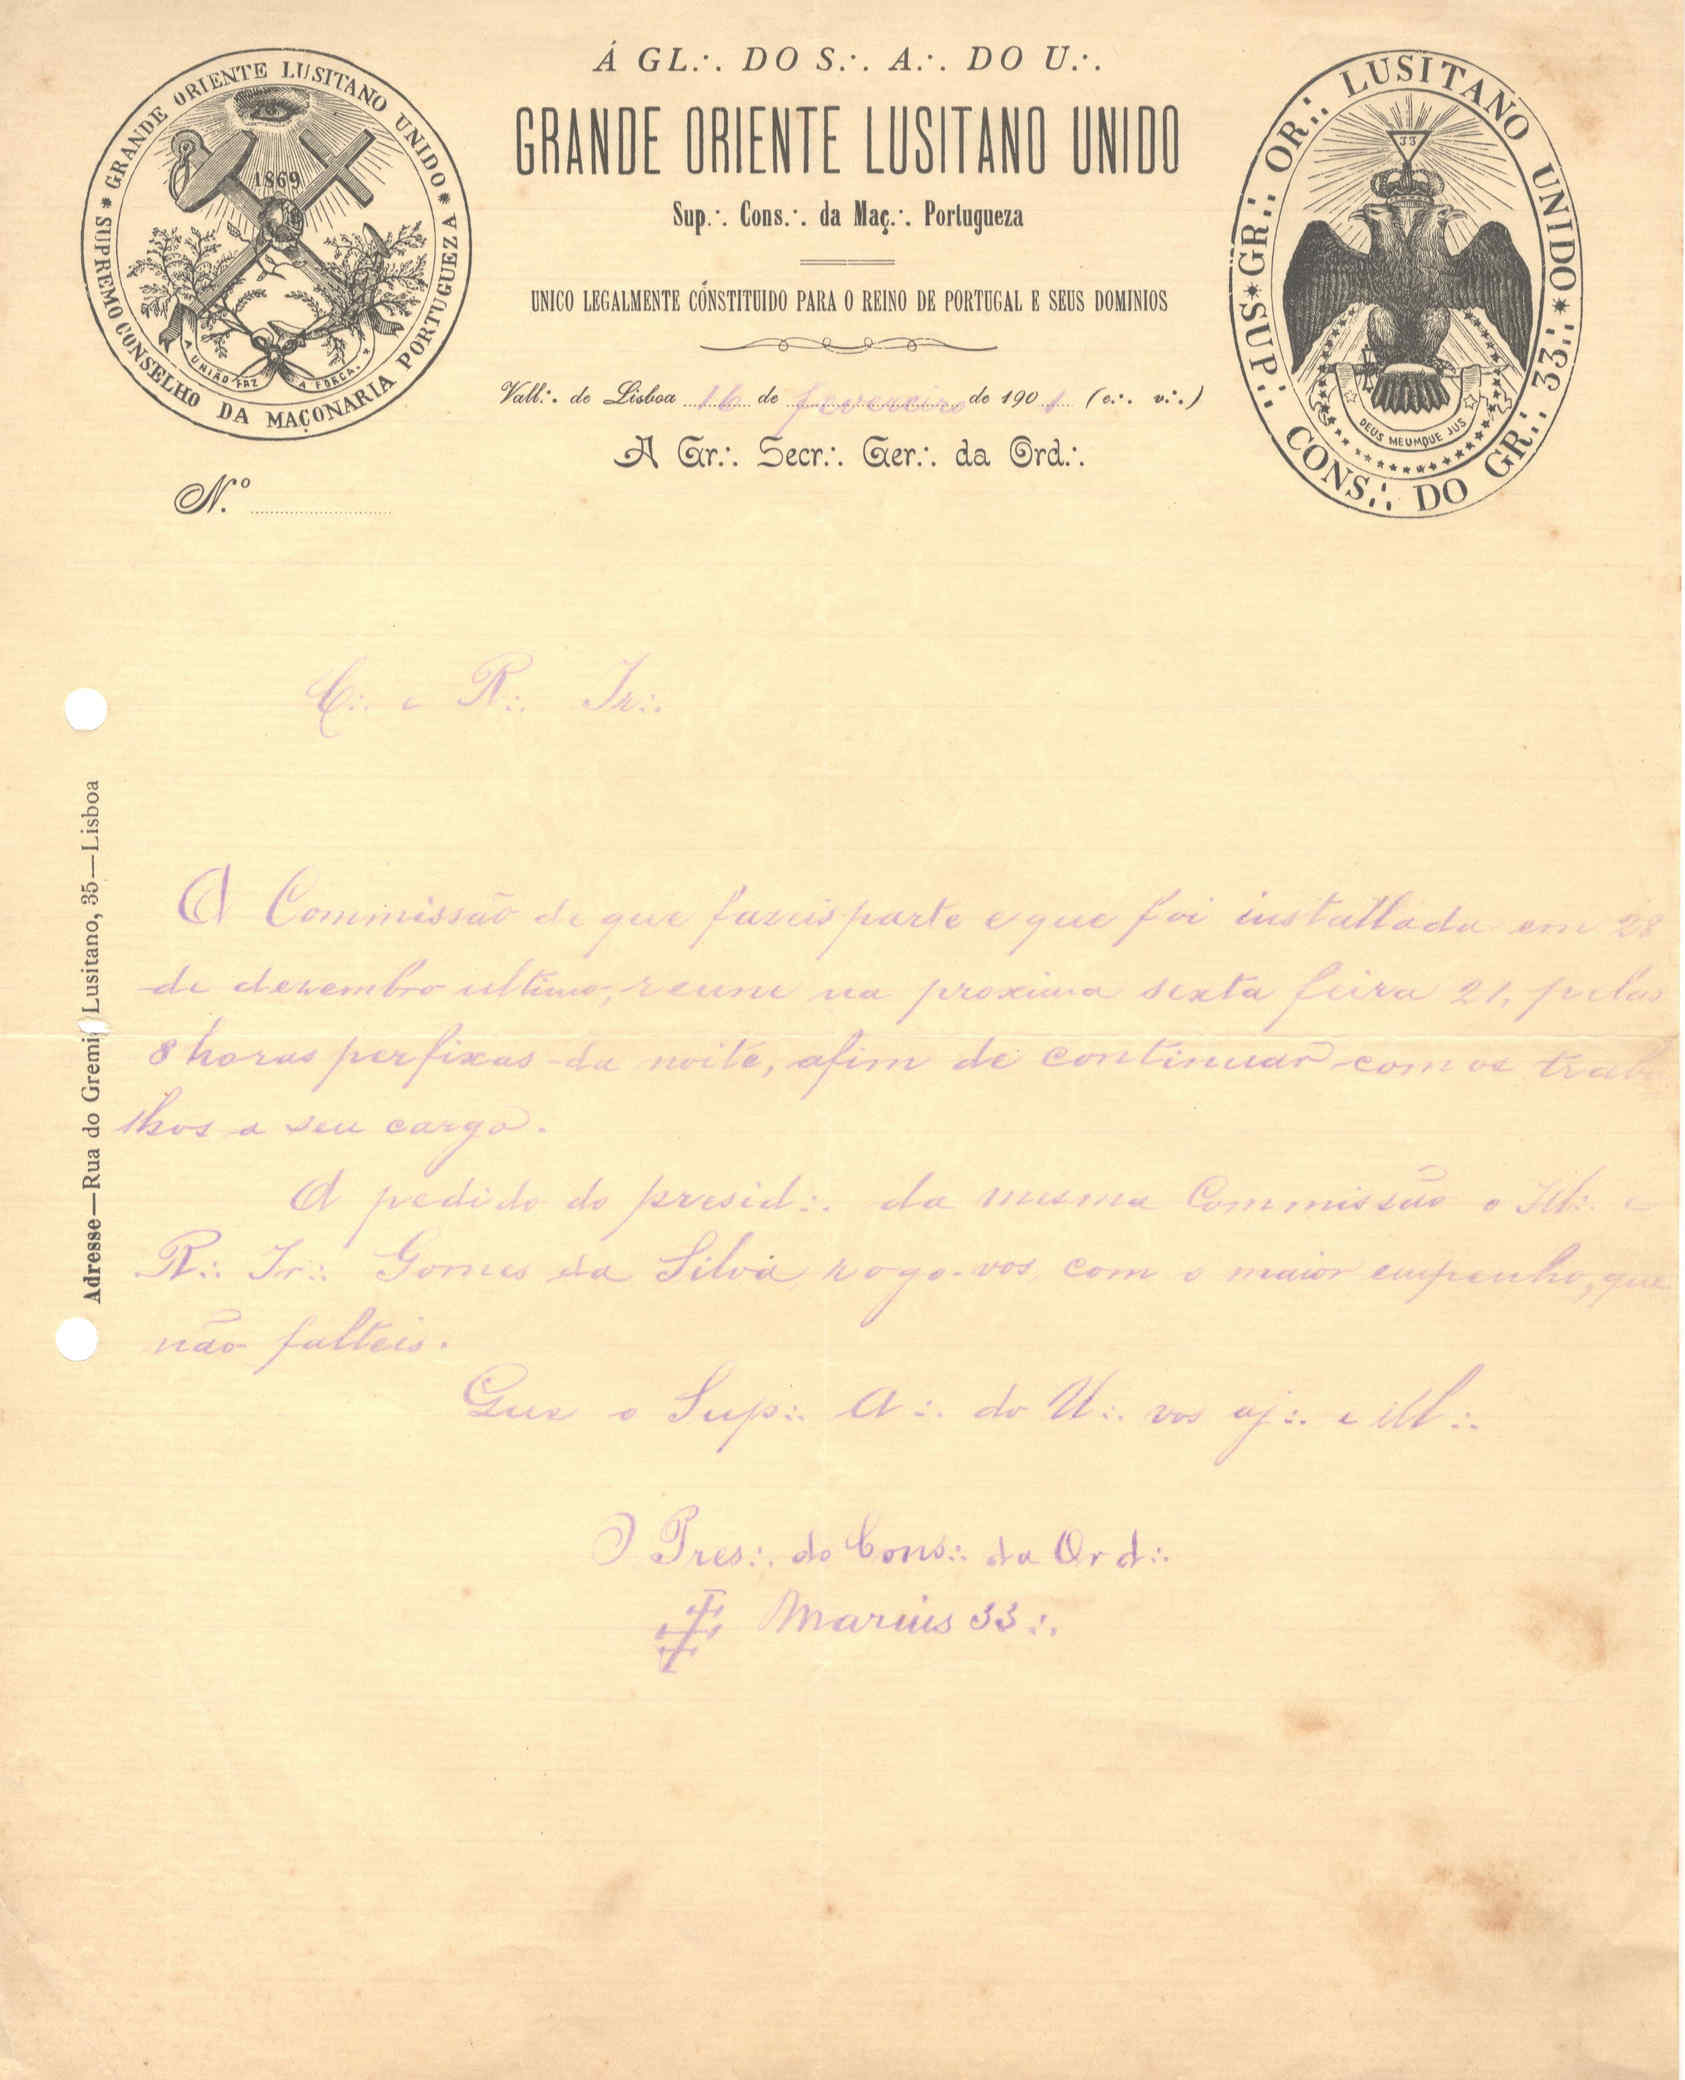 Á GL.·. DO S.·. A.·. DO U.·.
GRANDE ORIENTE LUSITANO UNIDO
Sup.·. Cons.·. da Maç.·. Portugueza
UNICO LEGALMENTE CÓNSTITUIDO PARA O REINO DE PORTUGAL E SEUS DOMINIOS
Vall.·. de Lisboa 16 de fevereiro de 1901 (e.·. v.·.)
A Gr.·. Secr.·. Ger.·. da Ord.·.
N.º
* GRANDE ORIENTE LUSITANO UNIDO *
SUPREMO CONSELHO DA MAÇONARIA PORTUGUEZA
1869
A UNIÃO FAZ A FORÇA.
* GR.·. OR.·. LUSITANO UNIDO *
SUP.·. CONS.·. DO GR.·. 33.·.
33
DEUS MEUMQUE JUS
C.·. e R.·. Ir.·.
A Commissão de que fazeis parte e que foi installada em 28
de dezembro ultimo, reune na proxima sexta feira 21, pelas
8 horas perfixas da noite, afim de continuar com os traba
lhos a seu cargo.
A pedido do presid.·. da mesma Commissão o Ill.·. e
R.·. Ir.·. Gomes da Silva, rogo-vos com o maior empenho, que
não falteis.
Que o Sup.·. A.·. do U.·. vos aj.·. e Ill.·.
O Pres.·. do Cons.·. da Ord.·.
Marius 33.·.
Adresse—Rua do Gremio Lusitano, 35—Lisboa